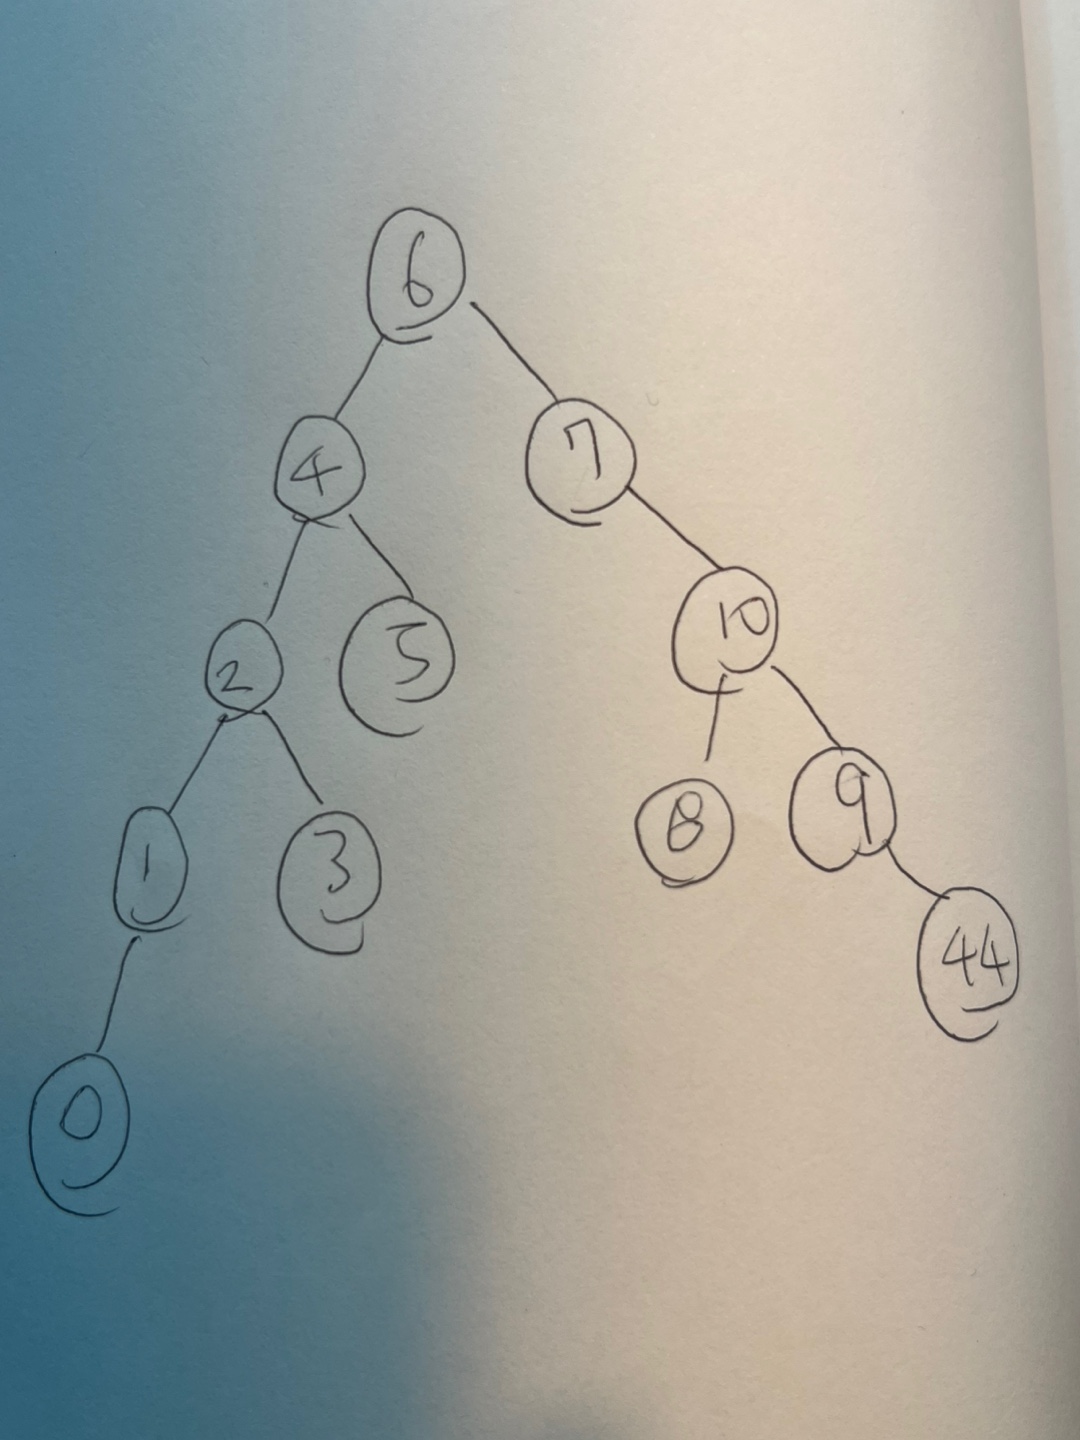 6
4 7
2 5 10
1 3 8 9
44
0